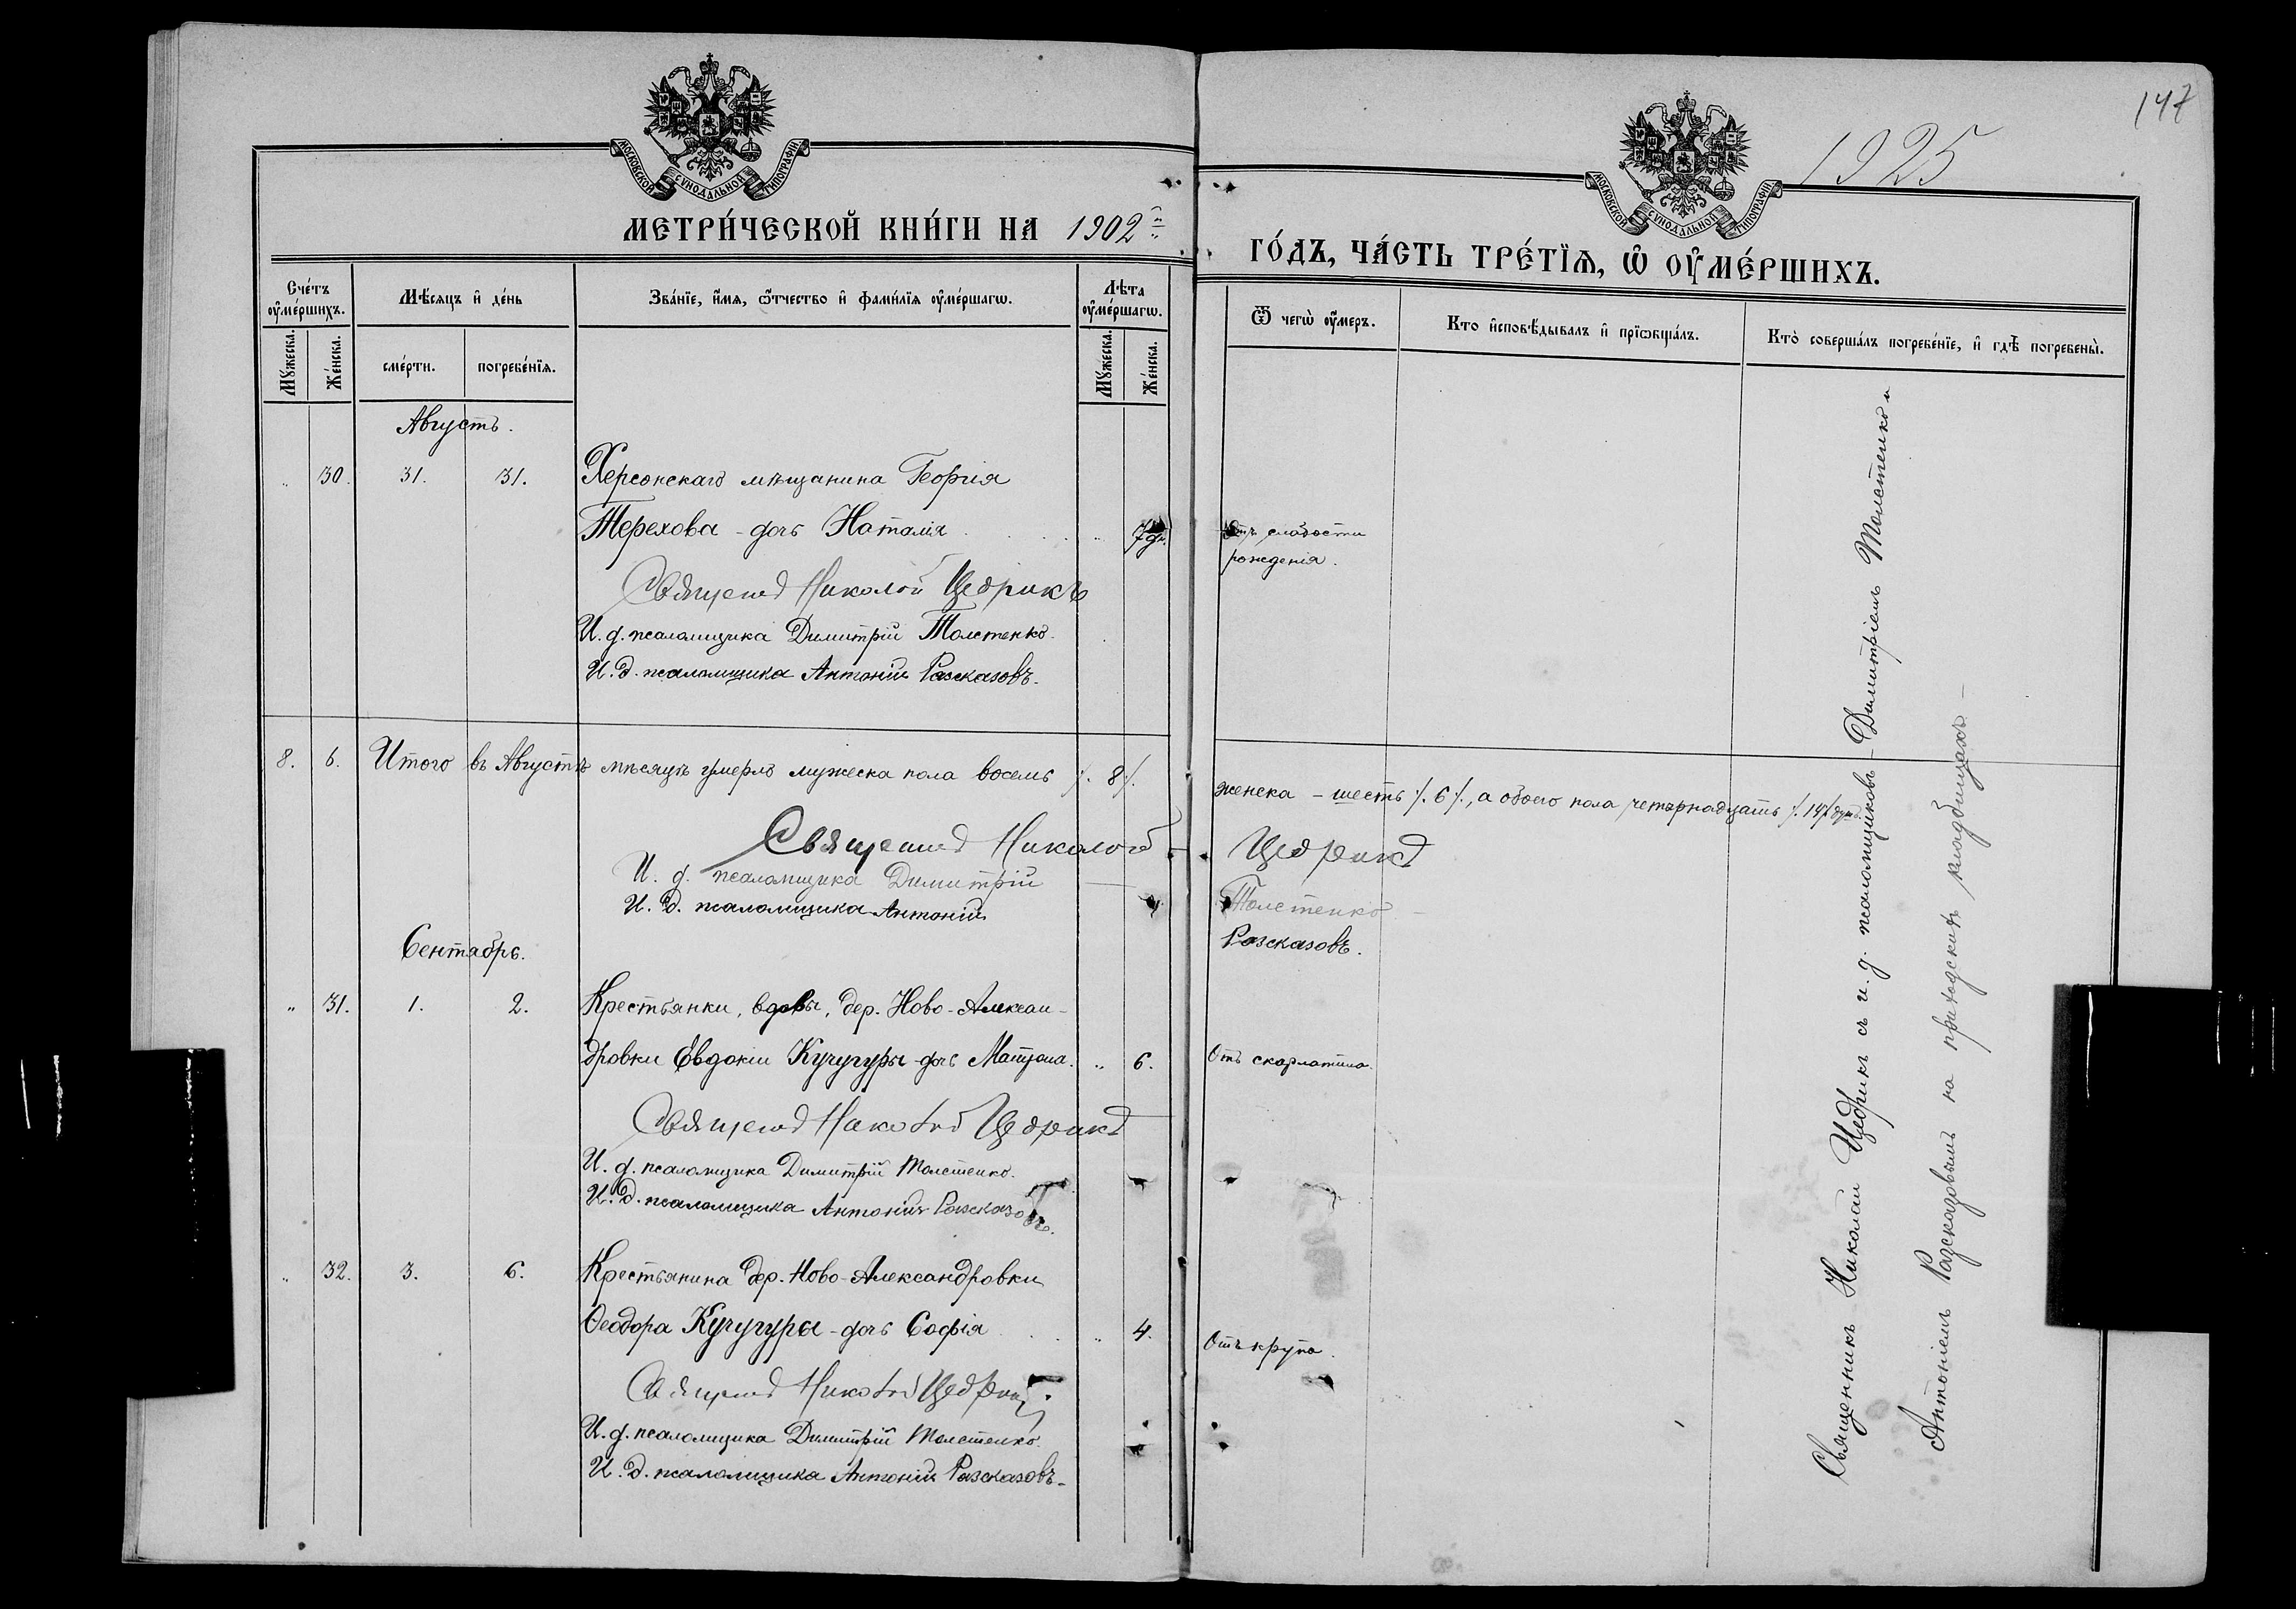 147
1925
МОСКОВСКОЙ СУНОДАЛЬНОЙ ТИПОГРАФІИ
МОСКОВСКОЙ СУНОДАЛЬНОЙ ТИПОГРАФІИ
МЕТРИ́ЧЕСКОЙ КНИ́ГИ НА 1902й
ГО́ДЪ, ЧА́СТЬ ТРЕ́ТЇѦ, Ѡ ОУ҆МЕ́РШИХЪ.
Сче́тъ оу҆ме́ршихъ.
Мѣ́сяцъ и҆ де́нь
Зва́нїе, и҆́мя, ѻ҆́тчество и҆ фами́лїя оу҆ме́ршагѡ.
Лѣ́та оу҆ме́ршагѡ.
Ѿ чегѡ̀ оу҆́меръ.
Кто и҆сповѣ́дывалъ и҆ прїѡбща́лъ.
Кто̀ соверша́лъ погребе́нїе, и҆ гдѣ̀ погребены̀.
Мꙋ́жеска.
Же́нска.
сме́рти.
погребе́нїя.
Мꙋ́жеска.
Же́нска.
Августъ.
„ 30. 31. 31. Херсонскаго мѣщанина Георгія
Терехова - дочь Наталія . . . . „ 7 д. Отъ слабости
рожденія.
Священникъ Николай Цедрикъ
И. д. псаломщика Димитрій Толстенко.
И. д. псаломщика Антоній Разсказовъ.
8. 6. Итого въ Августѣ мѣсяцѣ умерло мужеска пола восемь /. 8 /. женска - шесть /. 6 /., а обоего пола четырнадцать /. 14 /. душъ.
Священникъ Николай - Цедрикъ
И. д. псаломщика Димитрій — Толстенко
И. д. псаломщика Антоній Разсказовъ.
Сентябрь.
„ 31. 1. 2. Крестьянки, вдовы, дер. Ново-Алексан-
дровки Евдокіи Кучугуры - дочь Матрона. „ 6. Отъ скарлатины.
Священникъ Николай Цедрикъ
И. д. псаломщика Димитрій Толстенко.
И. д. псаломщика Антоній Разсказовъ.
„ 32. 3. 6. Крестьянина дер. Ново-Александровки
Ѳеодора Кучугуры - дочь Софія . . . „ 4. Отъ крупа.
Священникъ Николай Цедрикъ.
И. д. псаломщика Димитрій Толстенко.
И. д. псаломщика Антоній Разсказовъ.
Священникъ Николай Цедрикъ съ и. д. псаломщиковъ - Димитріемъ Толстенко и
Антоніемъ Разсказовымъ на приходскихъ кладбищахъ —